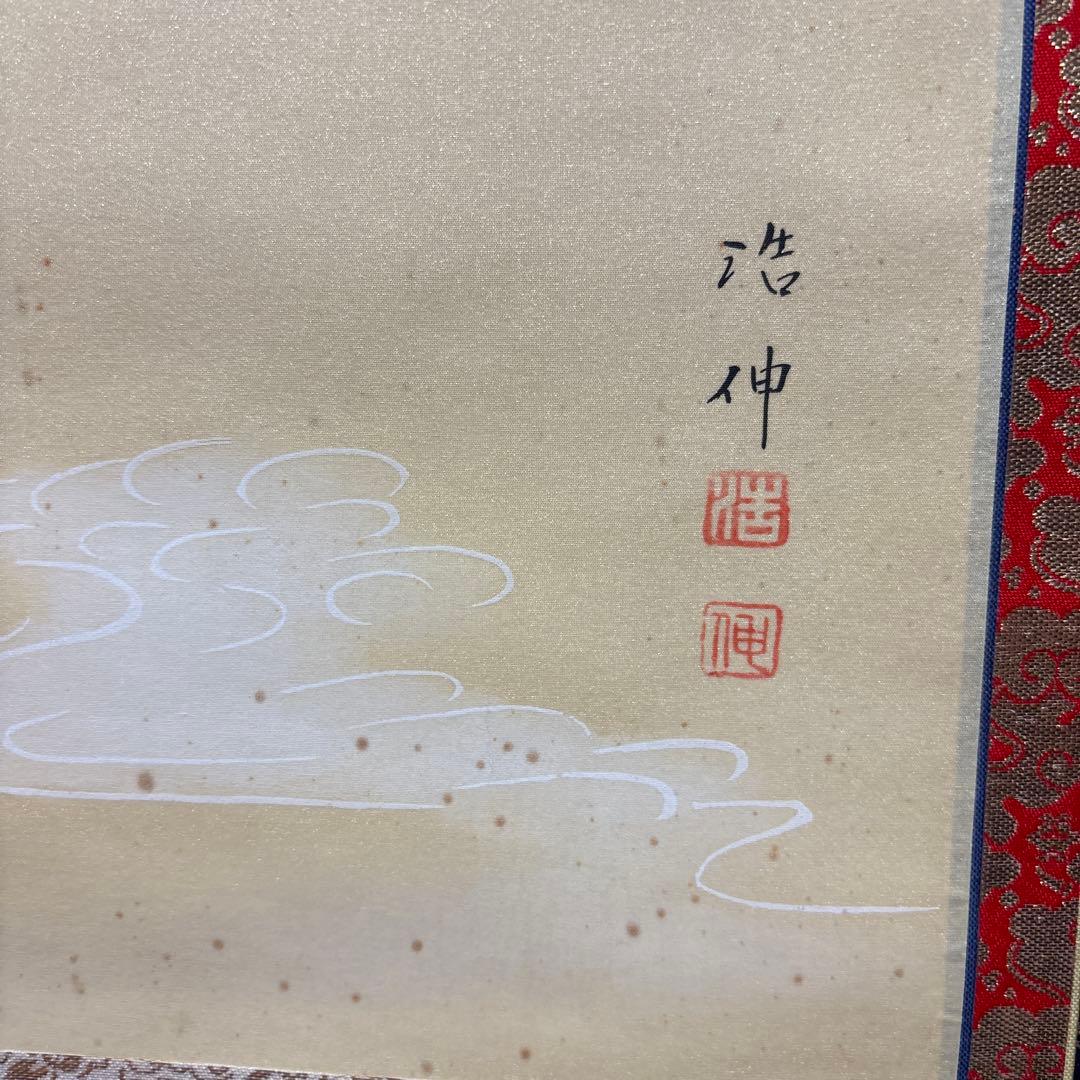 浩伸
浩
伸